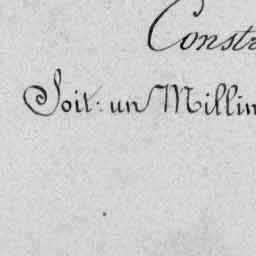 Constr
Soit: un Millin